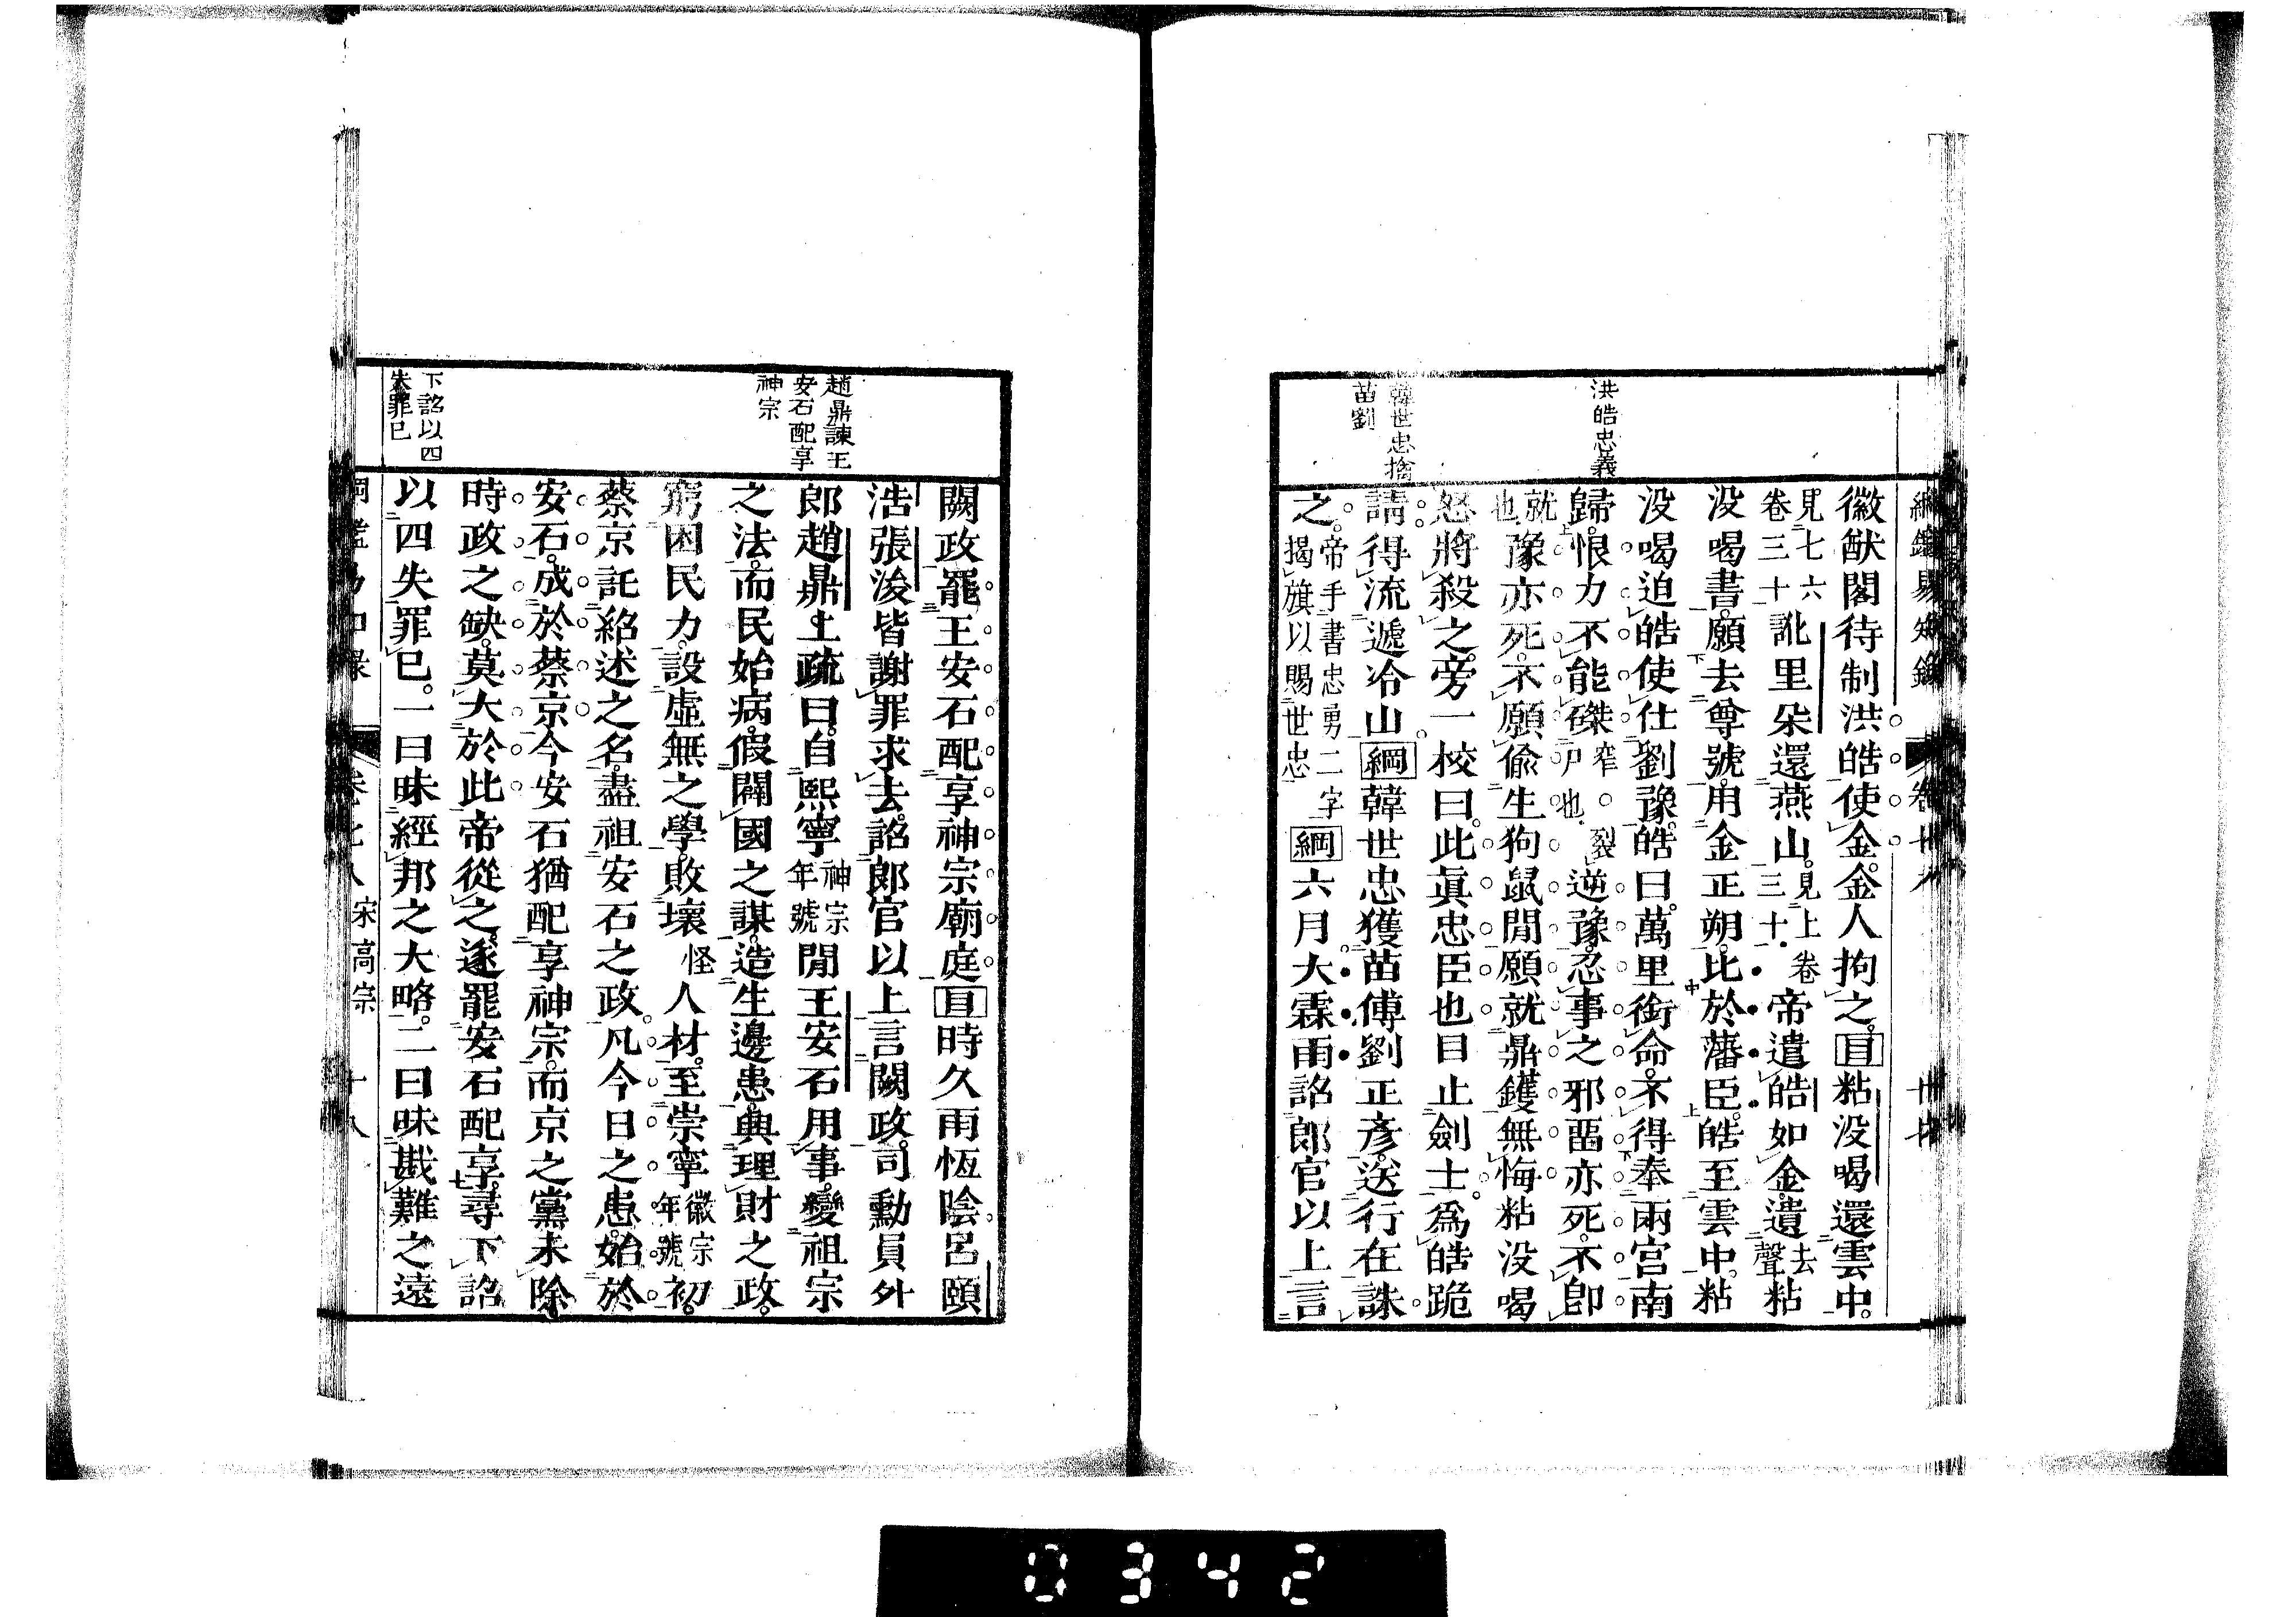 綱鑑易知錄
卷七十八
洪皓忠義
韓世忠擒
苗劉
徽猷閣待制洪皓使金。金人拘之。目粘没喝還雲中。
見七六卷三十訛里朶還燕山。見上卷三十帝遣皓如金。遺去聲粘
没喝書。願去尊號。用金正朔。比於藩臣。皓至雲中。粘
没喝迫皓使仕劉豫。皓曰。萬里銜命。不得奉兩宮南
歸。恨力不能磔窄裂尸也逆豫。忍事之邪。畱亦死。不卽
就也豫亦死。不願偷生狗鼠閒。願就鼎鑊無悔。粘没喝
怒將殺之。旁一校曰。此眞忠臣也。目止劍士。爲皓跪
請。得流遞冷山。綱韓世忠獲苗傅劉正彥。送行在誅
之。帝手書忠勇二字揭旗以賜世忠綱六月大霖雨。詔郎官以上言
趙鼎諫王
安石配享
神宗
下詔以四
失罪已
闕政。罷王安石配享神宗廟庭。目時久雨恆陰。呂頤
浩張浚皆謝罪求去。詔郎官以上言闕政。司勳員外
郎趙鼎上疏曰。自熙寧神宗年號閒王安石用事。變祖宗
之法。而民始病。假闢國之謀。造生邊患。興理財之政。
窮困民力。設虛無之學。敗壞怪人材。至崇寧徽宗年號初。
蔡京託紹述之名。盡祖安石之政。凡今日之患。始於
安石。成於蔡京。今安石猶配享神宗。而京之黨未除。
時政之缺。莫大於此。帝從之。遂罷安石配享。尋下詔
以四失罪已。一曰昧經邦之大略。二曰昧戡難之遠
宋高宗
十八
0342